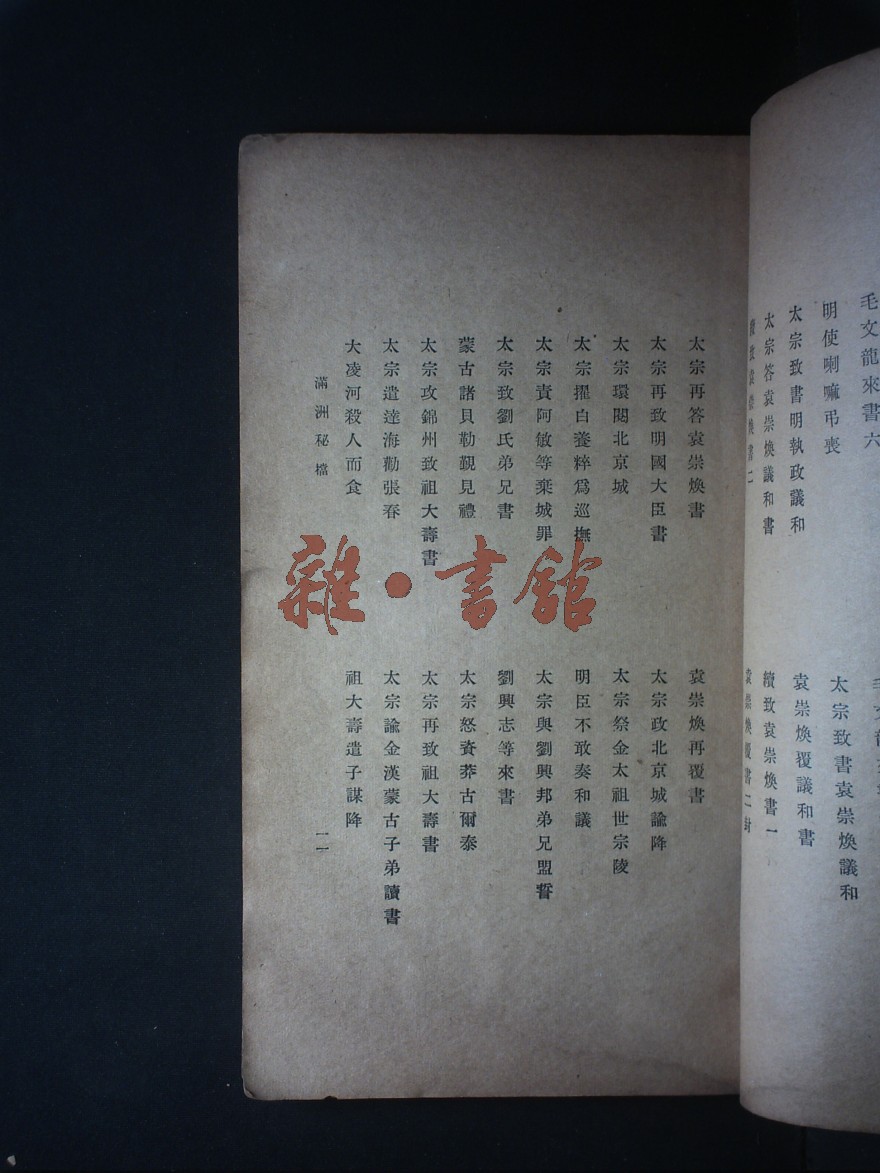 毛文龍來書六
明使喇嘛弔喪
太宗致書明執政議和
太宗答袁崇煥議和書
致袁崇煥書二
太宗致書袁崇煥議和
袁崇煥覆議和書
續致袁崇煥書一
袁崇煥覆書二封
太宗再答袁崇煥書
太宗再致明國大臣書
太宗環閱北京城
太宗擢白養粹爲巡撫
太宗責阿敏等棄城罪
太宗致劉氏弟兄書
蒙古諸貝勒覲見禮
太宗攻錦州致祖大壽書
太宗遣達海勸張春
大凌河殺人而食
袁崇煥再覆書
太宗政北京城諭降
太宗祭金太祖世宗陵
明臣不敢奏和議
太宗與劉興邦弟兄盟誓
劉興志等來書
太宗怒責莽古爾泰
太宗再致祖大壽書
太宗諭金漢蒙古子弟讀書
祖大壽遣子謀降
滿洲秘檔
雜·書館